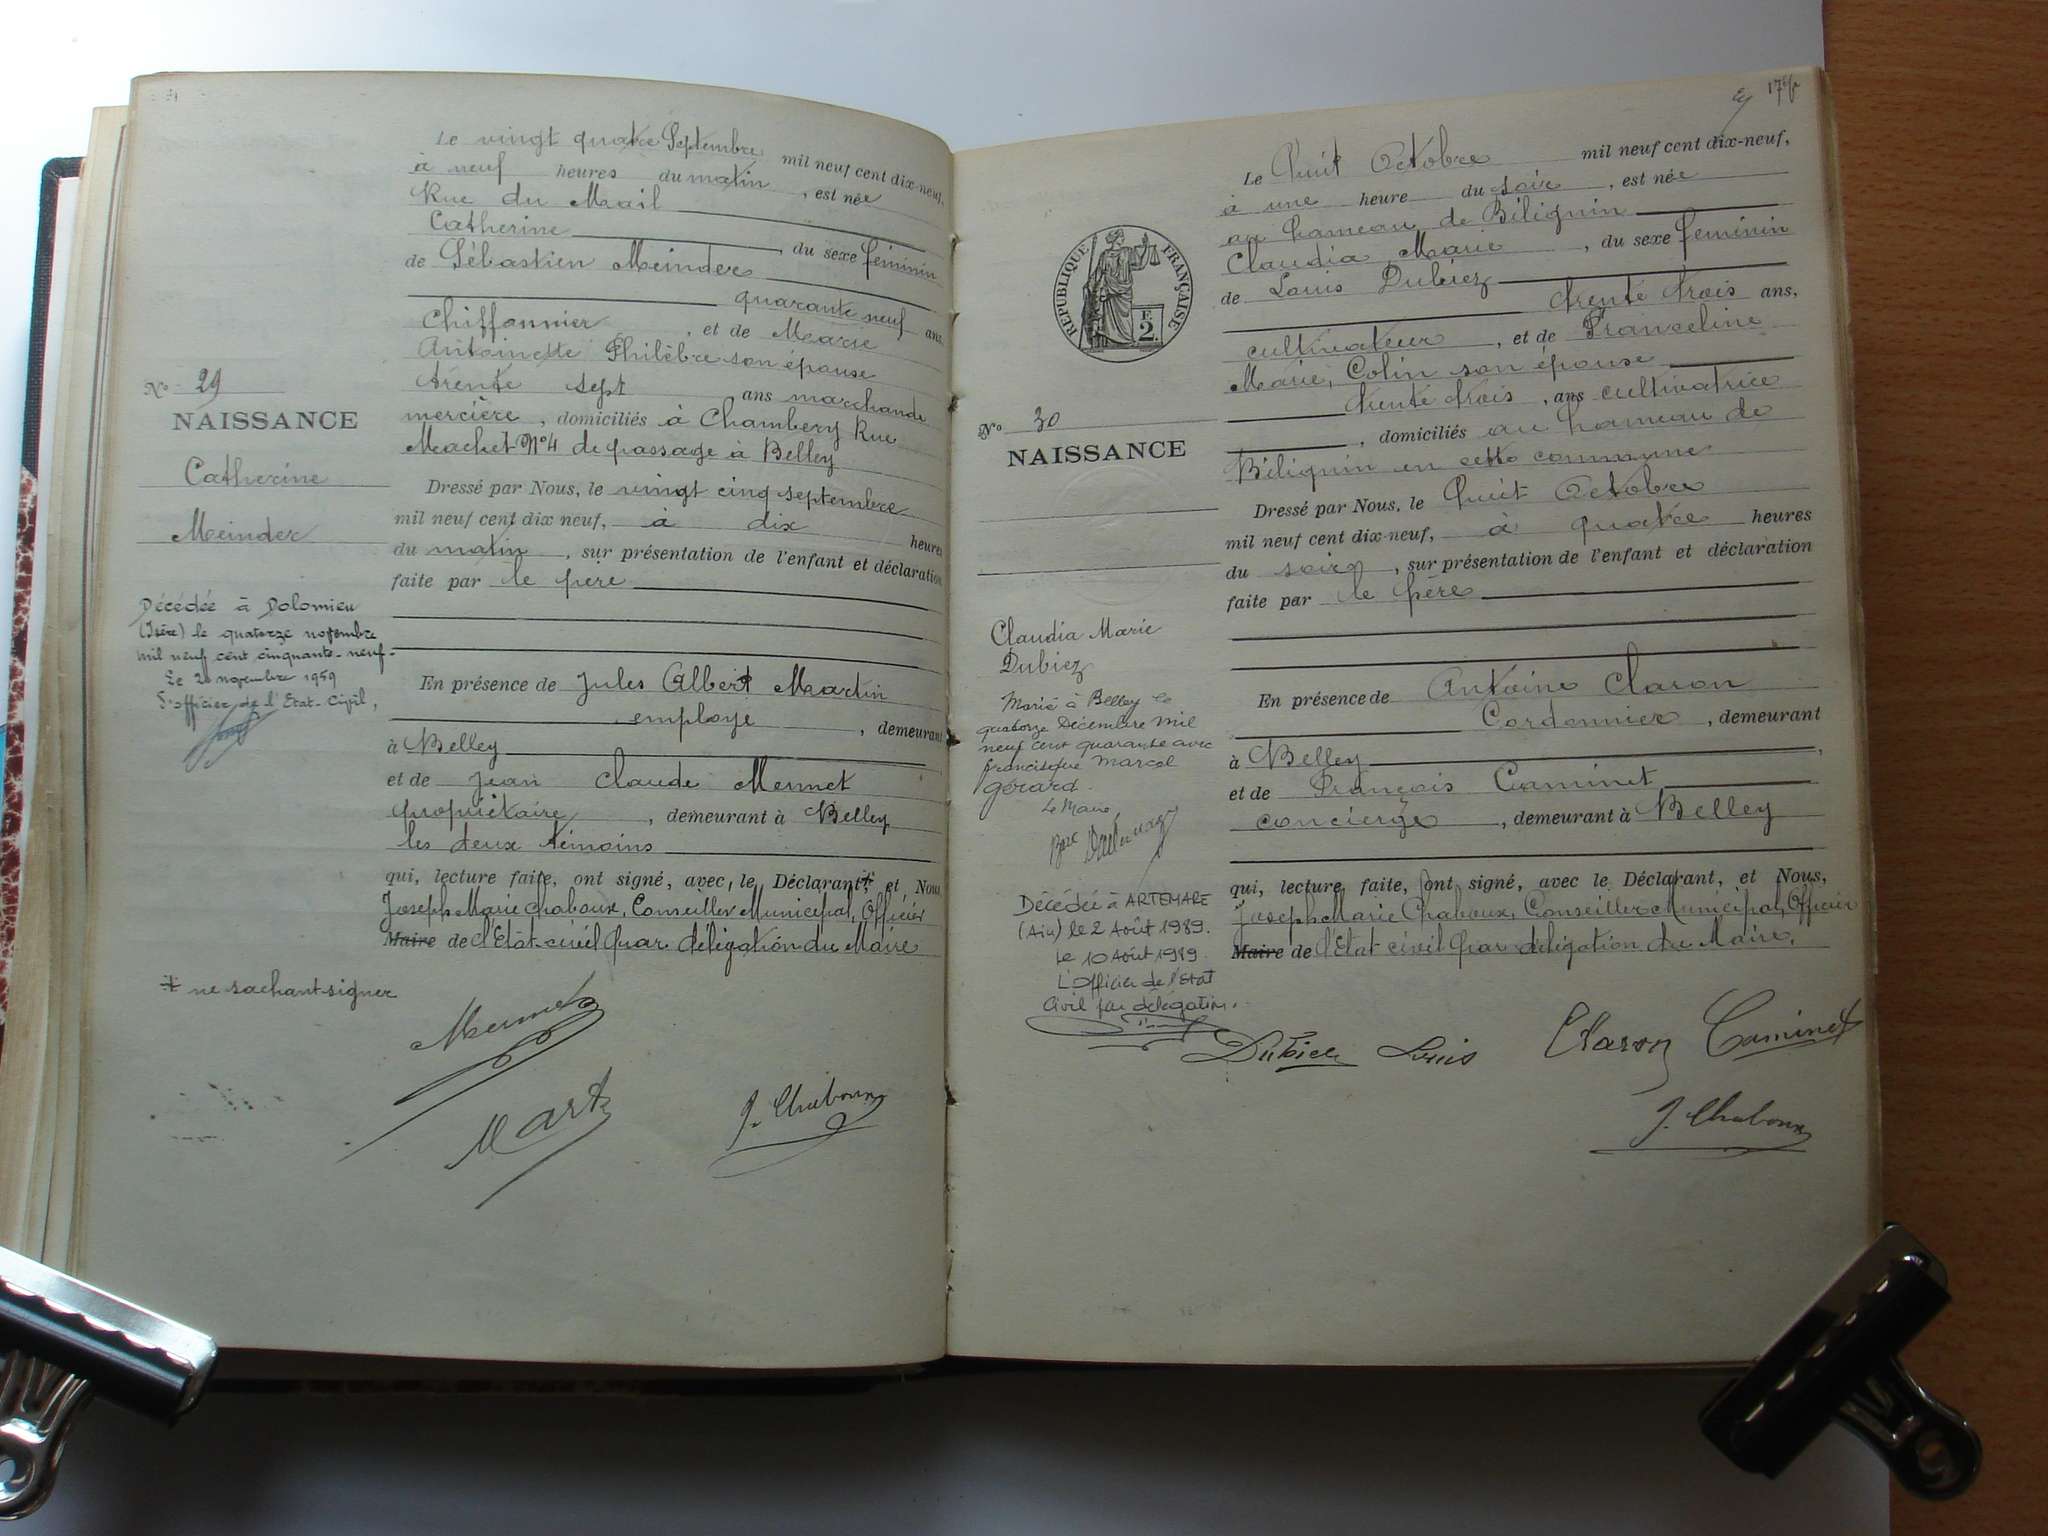 Le vingt quatre Septembre mil neuf cent dix-neuf,
à neuf heures du matin, est née
Rue du Mail
Catherine, du sexe feminin
de Sébastien Meinder
quarante neuf ans,
Chiffonnier, et de Marie
Antoinette Philèbre son épouse
trente sept ans marchande
mercière, domiciliés à Chambery Rue
Machet N°4 de passage à Belley
Dressé par Nous, le vingt cinq septembre
mil neuf cent dix neuf, à dix heures
du matin, sur présentation de l'enfant et déclaration
faite par le père
En présence de Jules Albert Martin
employe, demeurant
à Belley
et de Jean Claude Mermet
propriétaire, demeurant à Belley
les deux témoins
qui, lecture faite, ont signé, avec, le Déclarant* et Nous
Joseph Marie Chaboux, Conseiller Municipal, Officier
Maire de l'Etat-civil par délégation du Maire
N° 29
NAISSANCE
Catherine
Meinder
Décédée à Dolomieu
(Isère) le quatorze novembre
mil neuf cent cinquante-neuf-
Le 20 novembre 1959
L'officier de l'Etat-Civil,
* ne sachant signer
Mermet
Mart
J. Chaboux
17
Le huit Octobre mil neuf cent dix-neuf,
à une heure du soir, est née
au hameau de Bilignin
Claudia Marie, du sexe feminin
de Louis Dubiez
trente trois ans,
cultivateur, et de Franceline
Marie, Colin son épouse
trente trois, ans cultivatrice
, domiciliés au hameau de
Bilignin en cette commune
Dressé par Nous, le huit Octobre
mil neuf cent dix-neuf, à quatre heures
du soir, sur présentation de l'enfant et déclaration
faite par le père
En présence de Antoine Claron
Cordonnier, demeurant
à Belley
et de François Caminet
concierge, demeurant à Belley
qui, lecture faite, ont signé, avec le Déclarant, et Nous,
Joseph Marie Chaboux, Conseiller Municipal, Officier
Maire de l'Etat civil par délégation du Maire.
REPUBLIQUE FRANÇAISE
F.
2.
N° 30
NAISSANCE
Claudia Marie
Dubiez
Marié à Belley le
quatorze Décembre mil
neuf cent quarante avec
Francisque Marcel
Gérard.
Le Maire,
Décédée à ARTEMARE
(Ain) le 2 Août 1989.
Le 10 Août 1989.
L'Officier de l'Etat
Civil par délégation.
Dubiez Louis Claron Caminet
J. Chaboux